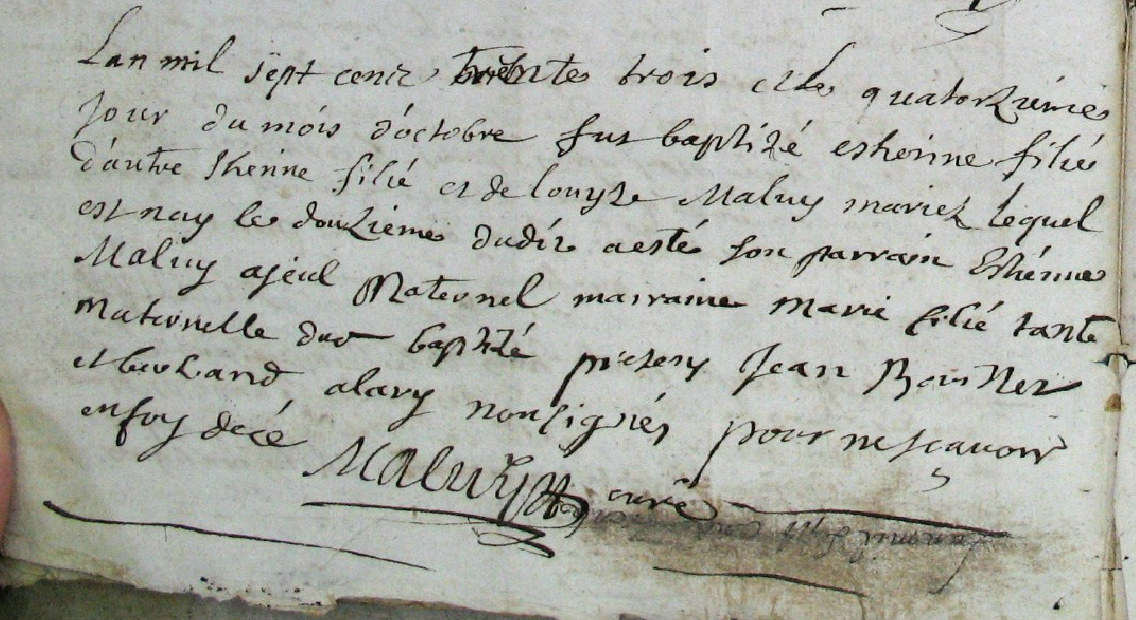 Lan mil sept cent trente trois et le quatorziéme
Jour du mois d'octobre fut baptizé esthenne filié
d'autre Sthenne filié et de louyze Maluy mariez lequel
est nay le douzieme dudit a esté son parrain Esthénne
Maluy ajeul Maternel marraine Marie filié tante
Maternelle dud baptizé presens Jean
et alary non signés pour ne scavoir
en foy de cé
Maluy curé